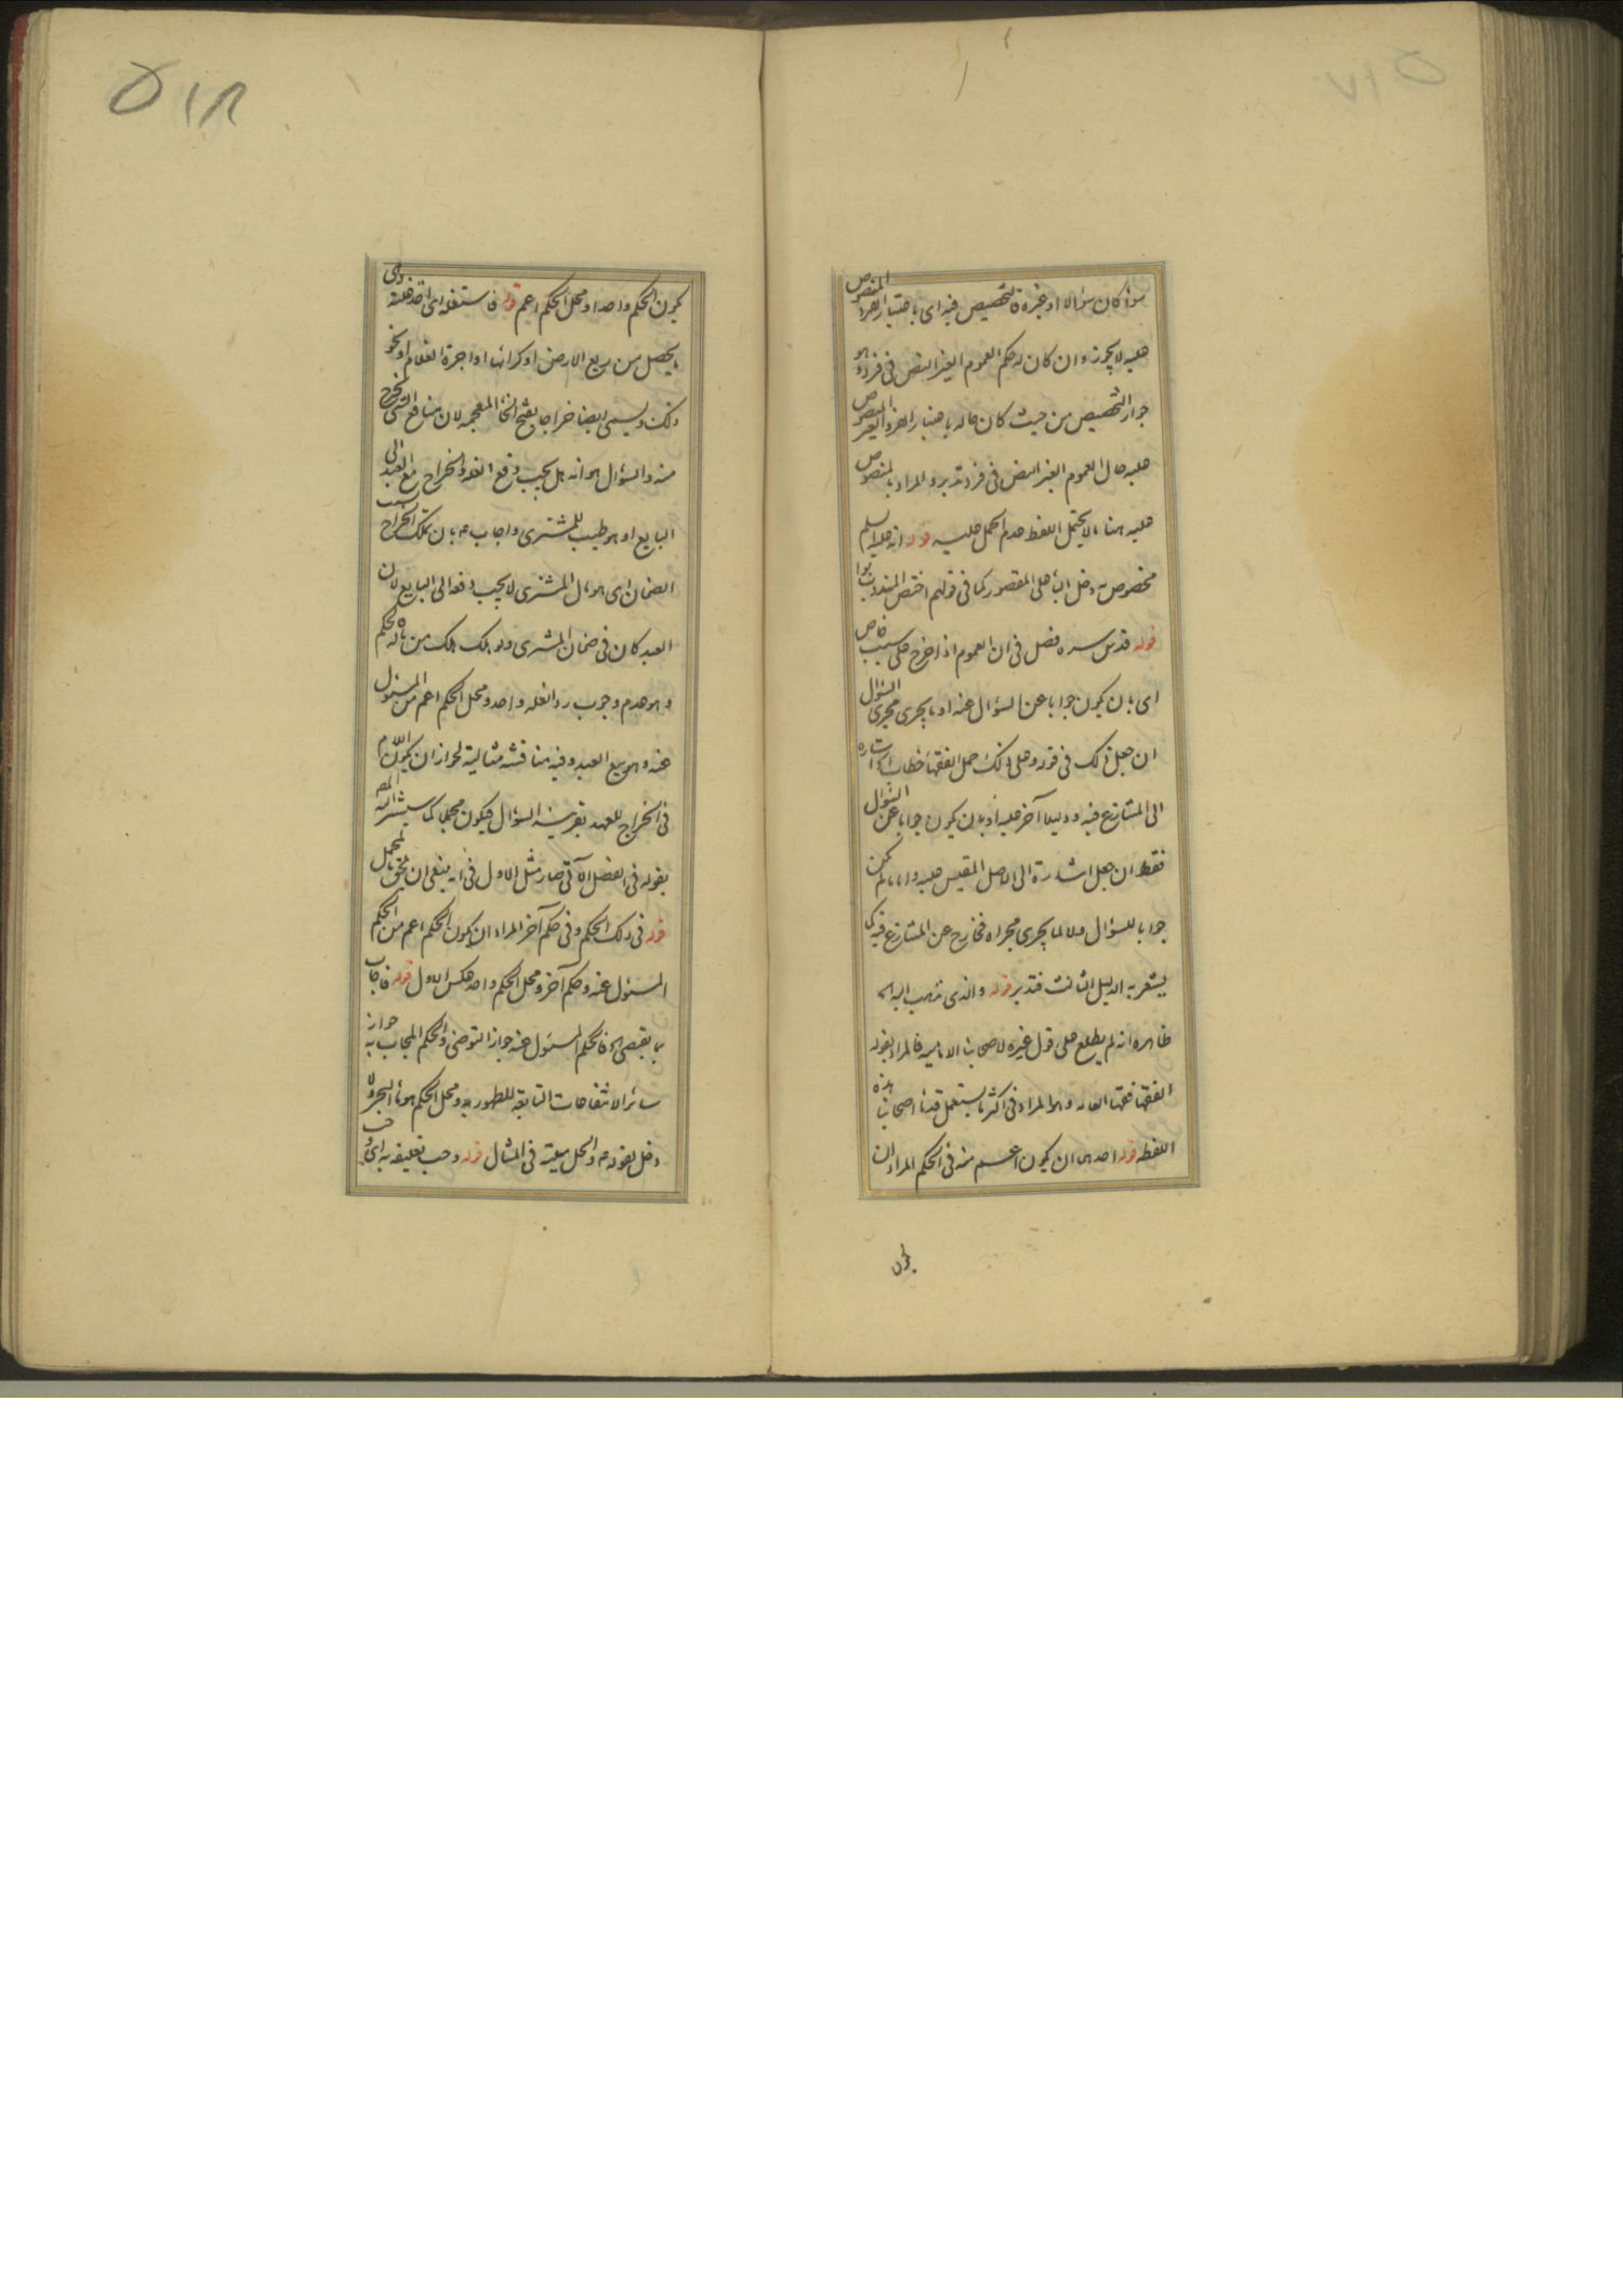 سواء كان سؤالا او غيره فالتخصيص فيه اى باعتبار الفرد المنصوص
عليه لا يجوز وان كان له حكم العموم الغير النص فى فرد وهو
جواز التخصيص من حيث كان عاما له باعتبار الفرد الغير المنصوص
عليه حال العموم الغير النص فى فرد تدبر والمراد بالمنصوص
عليه هنا ما لا يحتمل اللفظ عدم الحمل عليه قوله انه عليه السلم
مخصوص به دخل الباء على المقصور كما فى قولهم اختص المندوب بوا
قوله قدس سره فصل فى ان العموم اذا خرج على سبب خاص
اى بان يكون جوابا عن السؤال عنه او ما يجرى مجرى السؤال
ان جعل ذلك فى قوله وعلى ذلك حمل الفقهاء خطاب اشارة
الى المتنازع فيه ودليلا آخر عليه او بان يكون جوابا عن السؤال
فقط ان جعل اشارة الى الاصل المقيس عليه واما ما لم يكن
جوابا للسؤال ولا لما يجرى مجراه فخارج عن المتنازع فيه كما
يشعر به الدليل الثالث فتدبر قوله والذى نذهب اليه الخ
ظاهره انه لم يطلع على قول غيره لاصحابنا الامامية فالمراد بقوله
الفقهاء فقهاء العامة وهو المراد فى اكثر ما يستعمل قدماء اصحابنا هذه
اللفظة قوله احدهما ان يكون اعم منه فى الحكم المراد ان
يكون
٥١٨
يكون الحكم واحدا ومحل الحكم اعم قوله فاستغله اى اخذ غلته وهى
ما يحصل من ريع الارض او كرائها او اجرة الغلام او نحو
ذلك ويسمى ايضا خراجا بفتح الخاء المعجمة لان منافع الشئ تخرج
منه والسؤال هو انه هل يجب دفع الغلة والخراج مع العبد الى
البايع او هو طيب للمشترى واجاب ع بان تلك الخراج بسبب
الضمان اى هو مال المشترى لا يجب دفعه الى البايع لان
العبد كان فى ضمان المشترى ولو هلك هلك من ماله فالحكم
وهو عدم وجوب رد الغلة واحد ومحل الحكم اعم من المسئول
عنه وهو بيع العبد وفيه مناقشة مثالية لجواز ان يكون اللام
فى الخراج للعهد بقرينة السؤال فيكون مجملا كما سيشير اليه المصـ
بقوله فى الفصل الآتى صار مثل الاول فى انه ينبغى ان يلحق بالمجمل
قوله فى ذلك الحكم وفى حكم آخر المراد ان يكون الحكم اعم من الحكم
المسئول عنه وحكم آخر ومحل الحكم واحد عكس الاول قوله فاجاب
بما يقتضى الخ فالحكم المسئول عنه جواز التوضى والحكم المجاب به جواز
سائر الانتفاعات التابعة للطهورية ومحل الحكم هو ماء البحر ولا
دخل لقوله ع والحل ميتته فى المثال قوله وجب تعليقه به اى وجب